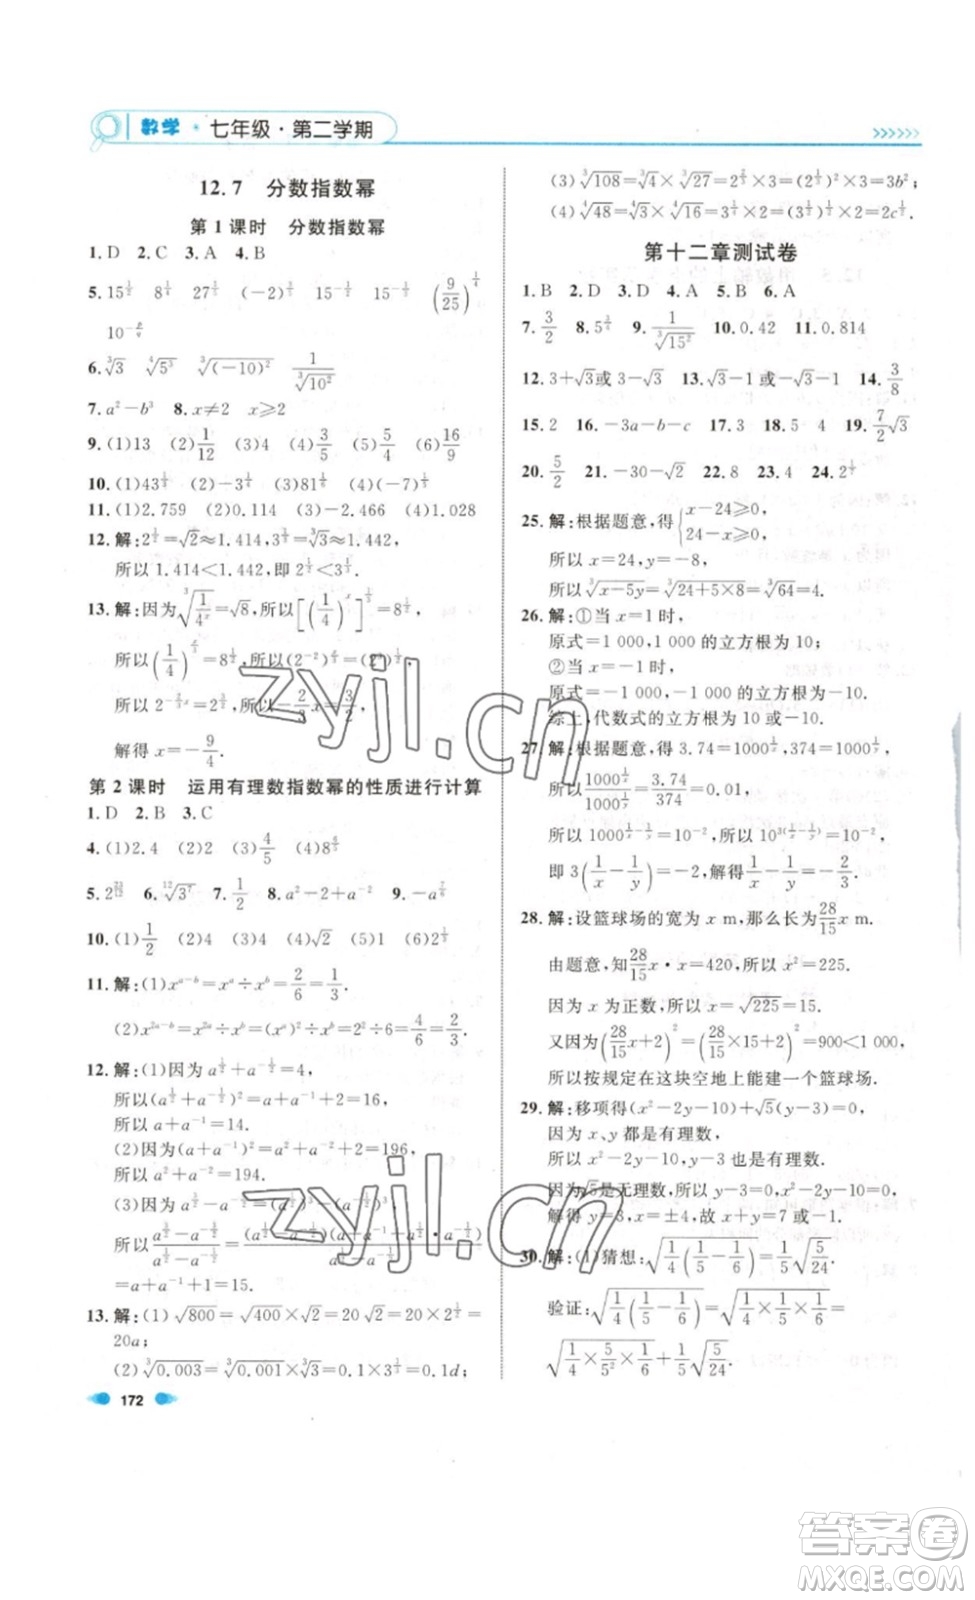 数学·七年级·第二学期
12.7 分数指数幂
第1课时 分数指数幂
1. D 2. C 3. A 4. B
5. 15^{1/2} 8^{1/2} 27^{1/3} (-2)^{3/5} 15^{-1/2} 15^{-1/3} (9/25)^{1/4}
6. ∛3 ∜5³ ∛(-10)² 1/∛10²
7. a²-b³ 8. x≠2 x≥2
9. (1)13 (2)1/12 (3)4 (4)3/5 (5)6 (6)16/9
11. (1)2.759 (2)0.114 (3)-2.466 (4)1.028
12. 解:2^{1/2}=√2≈1.414,2^{1/3}=∛3≈1.442,
所以1.414<1.442,即2^{1/2}<3^{1/3}.
解得 x=-9/4.
第2课时 运用有理数指数幂的性质进行计算
1. D 2. B 3. C
4. (1)2.4 (2)2 (3)4/5
7. 1/2
10. (1)1/2 (2)4 (3)4 (4)√2 (5)1 (6)4
11. 解:(1)x^{a-b}=x^a÷x^b=2/6=1/3.
(2)x^{2a-b}=x^{2a}÷x^b=(x^a)²÷x^b=2²÷6=4/6=2/3.
12. 解:(1)因为a^{1/2}+a^{-1/2}=4,
所以(a^{1/2}+a^{-1/2})²=a+a^{-1}+2=16,
所以a+a^{-1}=14.
(2)因为(a+a^{-1})²=a²+a^{-2}+2=196,
所以a²+a^{-2}=194.
=a+a^{-1}+1=15.
13. 解:(1)√800=√400×√2=20√2=20×2^{1/2}=
20a;
(2)∛0.003=∛0.001×∛3=0.1×3^{1/3}=0.1d;
172
(3)∛108=∛4×∛27=2^{2/3}×3=(2^{1/3})²×3=3b²;
(4)∜48=∜3×∜16=3^{1/4}×2=2c^{1/2}.
第十二章测试卷
1. B 2. D 3. D 4. A 5. B 6. A
7. 3/2 8. 5^{3/4} 9. 1/∛15² 10. 0.42 11. 0.814
12. 3+√3或3-√3 13. √3-1或-√3-1 14. 3/8
15. 2 16. -3a-b-c 17. 3 18. 5 4 19. 7/2√3
20. 5/2 21. -30-√2 22. 8 23. 4
25. 解:根据题意,得{x-24≥0, 24-x≥0,
所以x=24,y=-8,
所以∛(x-5y)=∛(24+5×8)=∛64=4.
26. 解:①当x=1时,
原式=1 000,1 000的立方根为10;
②当x=-1时,
原式=-1000,-1000的立方根为-10.
综上,代数式的立方根为10或-10.
27. 解:根据题意,得3.74=1000^{1/x},374=1000^{1/y},
所以1000^{1/x}/1000^{1/y}=3.74/374=0.01,
所以1000^{1/x-1/y}=10^{-2},所以10^{3(1/x-1/y)}=10^{-2},
即3(1/x-1/y)=-2,解得1/x-1/y=-2/3.
28. 解:设篮球场的宽为x m,那么长为28/15 x m.
由题意,知28/15 x·x=420,所以x²=225.
因为x为正数,所以x=√225=15.
又因为(28/15 x+2)²=(28/15×15+2)²=900<1 000,
所以按规定在这块空地上能建一个篮球场.
29. 解:移项得(x²-2y-10)+√5(y-3)=0,
因为x、y都是有理数,
所以x²-2y-10与y-3是有理数.
因为√5是无理数,所以y-3=0,x²-2y-10=0,
解得y=3,x=±4,故x+y=7或-1.
30. 解:(1)猜想:√(1/4(1/5-1/6))=1/5√(5/24)
验证:√(1/4(1/5-1/6))=√(1/4×1/5×1/6)
=√(1/4×5/5²×1/6)=1/5√(5/24).
zyjl.cn
zyjl.cn
答案卷
MXQE.COM